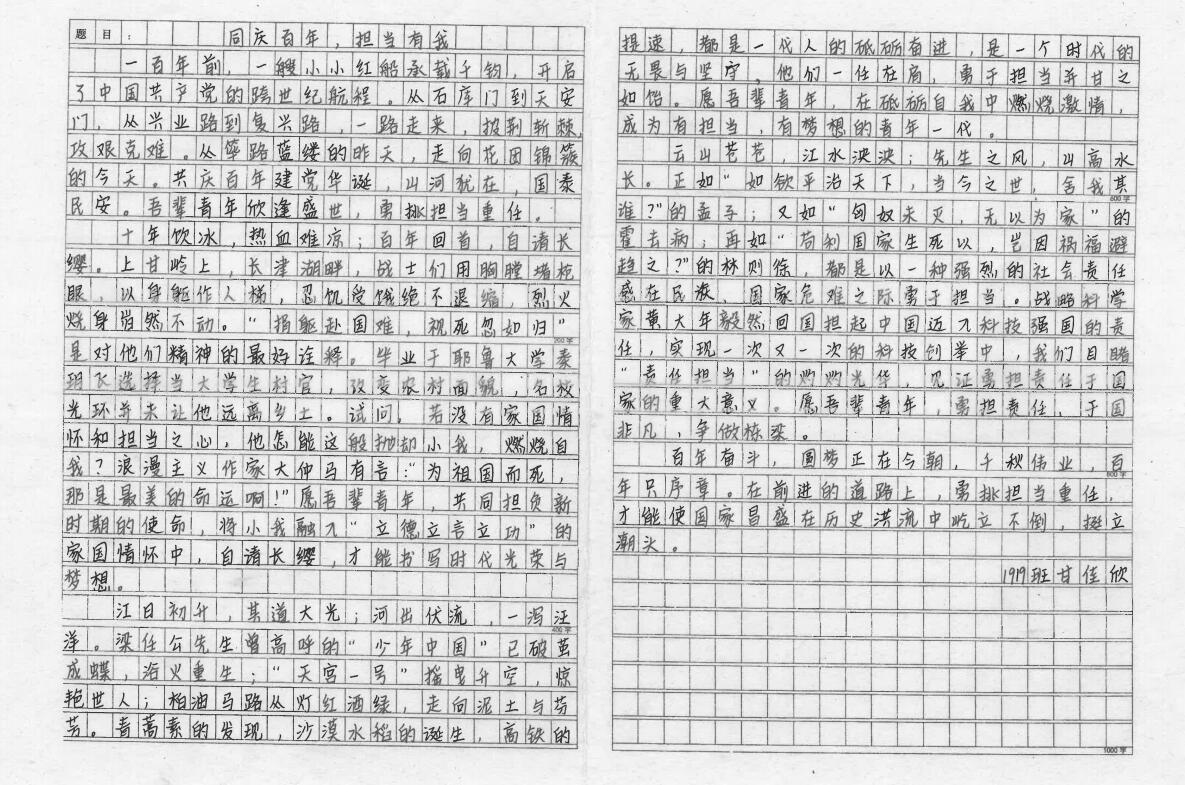 题目：同庆百年，担当有我
一百年前，一艘小小红船承载千钧，开启
了中国共产党的跨世纪航程。从石库门到天安
门，从兴业路到复兴路，一路走来，披荆斩棘，
攻艰克难。从筚路蓝缕的昨天，走向花团锦簇
的今天。共庆百年建党华诞，山河犹在，国泰
民安。吾辈青年欣逢盛世，勇挑担当重任。
十年饮冰，热血难凉；百年回首，自请长
缨。上甘岭上，长津湖畔，战士们用胸膛堵枪
眼，以身躯作人梯，忍饥受饿绝不退缩，烈火
烧身岿然不动。“捐躯赴国难，视死忽如归”
200字
是对他们精神的最好诠释。毕业于耶鲁大学秦
玥飞选择当大学生村官，改变农村面貌，名校
光环并未让他远离乡土。试问，若没有家国情
怀和担当之心，他怎能这般抛却小我，燃烧自
我？浪漫主义作家大仲马有言：“为祖国而死，
那是最美的命运啊！”愿吾辈青年，共同担负新
时期的使命，将小我融入“立德立言立功”的
家国情怀中，自请长缨，才能书写时代光荣与
梦想。
江日初升，其道大光；河出伏流，一泻汪
400字
洋。梁任公先生曾高呼的“少年中国”已破茧
成蝶，浴火重生；“天宫一号”摇曳升空，惊
艳世人；柏油马路从灯红酒绿，走向泥土与芬
芳。青蒿素的发现，沙漠水稻的诞生，高铁的
提速，都是一代人的砥砺奋进，是一个时代的
无畏与坚守，他们一任在肩，勇于担当并甘之
如饴。愿吾辈青年，在砥砺自我中燃烧激情，
成为有担当，有梦想的青年一代。
云山苍苍，江水泱泱；先生之风，山高水
长。正如“如欲平治天下，当今之世，舍我其
600字
谁？”的孟子；又如“匈奴未灭，无以为家”的
霍去病；再如“苟利国家生死以，岂因祸福避
趋之？”的林则徐，都是以一种强烈的社会责任
感在民族、国家危难之际勇于担当。战略科学
家黄大年毅然回国担起中国迈入科技强国的责
任，实现一次又一次的科技创举中，我们目睹
“责任担当”的灼灼光华，见证勇担责任于国
家的重大意义。愿吾辈青年，勇担责任，于国
非凡，争做栋梁。
百年奋斗，圆梦正在今朝，千秋伟业，百
800字
年只序章。在前进的道路上，勇挑担当重任，
才能使国家昌盛在历史洪流中屹立不倒，挺立
潮头。
1919班甘佳欣
1000字